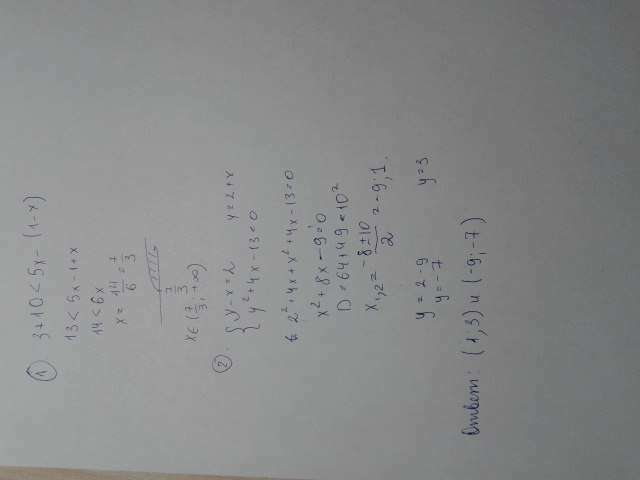 1) 3+10<5x-(1-x)
13<5x-1+x
14<6x
x=14/6=7/3
7/3
x∈(7/3;+∞)
2). {y-x=2 y=2+x
{y²+4x-13=0
2²+4x+x²+4x-13=0
x²+8x-9=0
D=64+49=10²
x1,2=(-8±10)/2=-9;1.
y=2-9 y=3
y=-7
Ответ: (1;3) и (-9;-7)